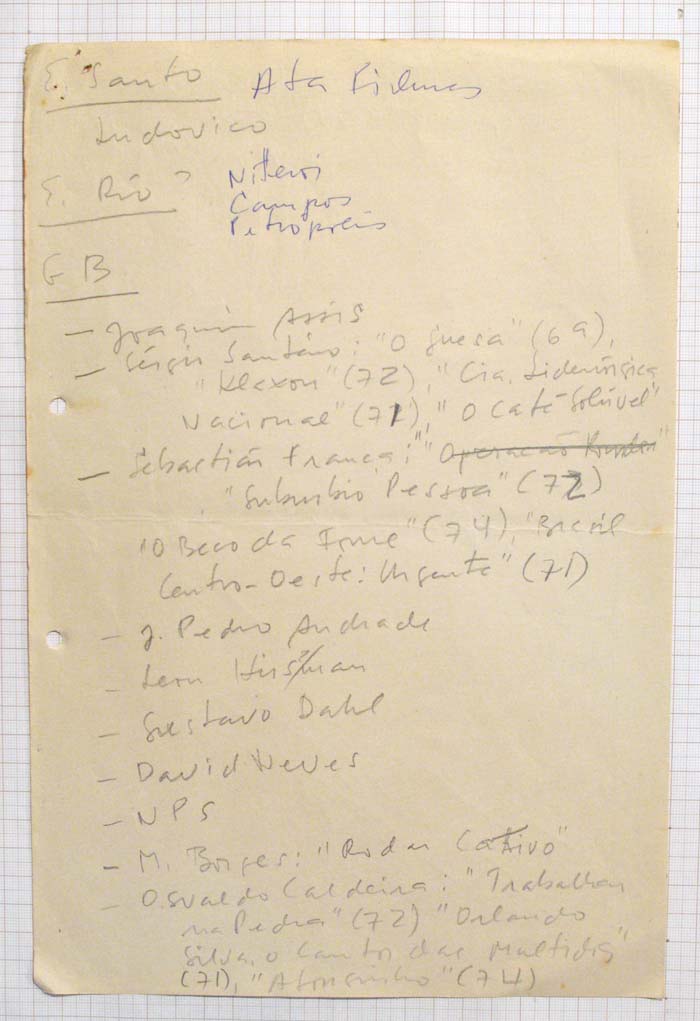 E. Santo
Ata Filmes
Ludovico
E. Rio
Niteroi
Campos
Petropolis
GB
- Joaquim Assis
- Sérgio Santeiro: "O Guesa" (69),
"Klaxon" (72), "Cia. Siderúrgica
Nacional" (71), "O Café Solúvel"
- Sebastião França: "Operação Rondon"
"Suburbio Pessoa" (72)
"O Beco da Fome" (74), "Brasil
Centro-Oeste: Urgente" (71)
- J. Pedro Andrade
- Leon Hirszman
- Gustavo Dahl
- David Neves
- NPS
- M. Borges: "Rodar Cativo"
- Osvaldo Caldeira: "Trabalhar
na Pedra" (72) "Orlando
Silva, o Cantor das Multidões"
(71), "Afonsinho" (74)